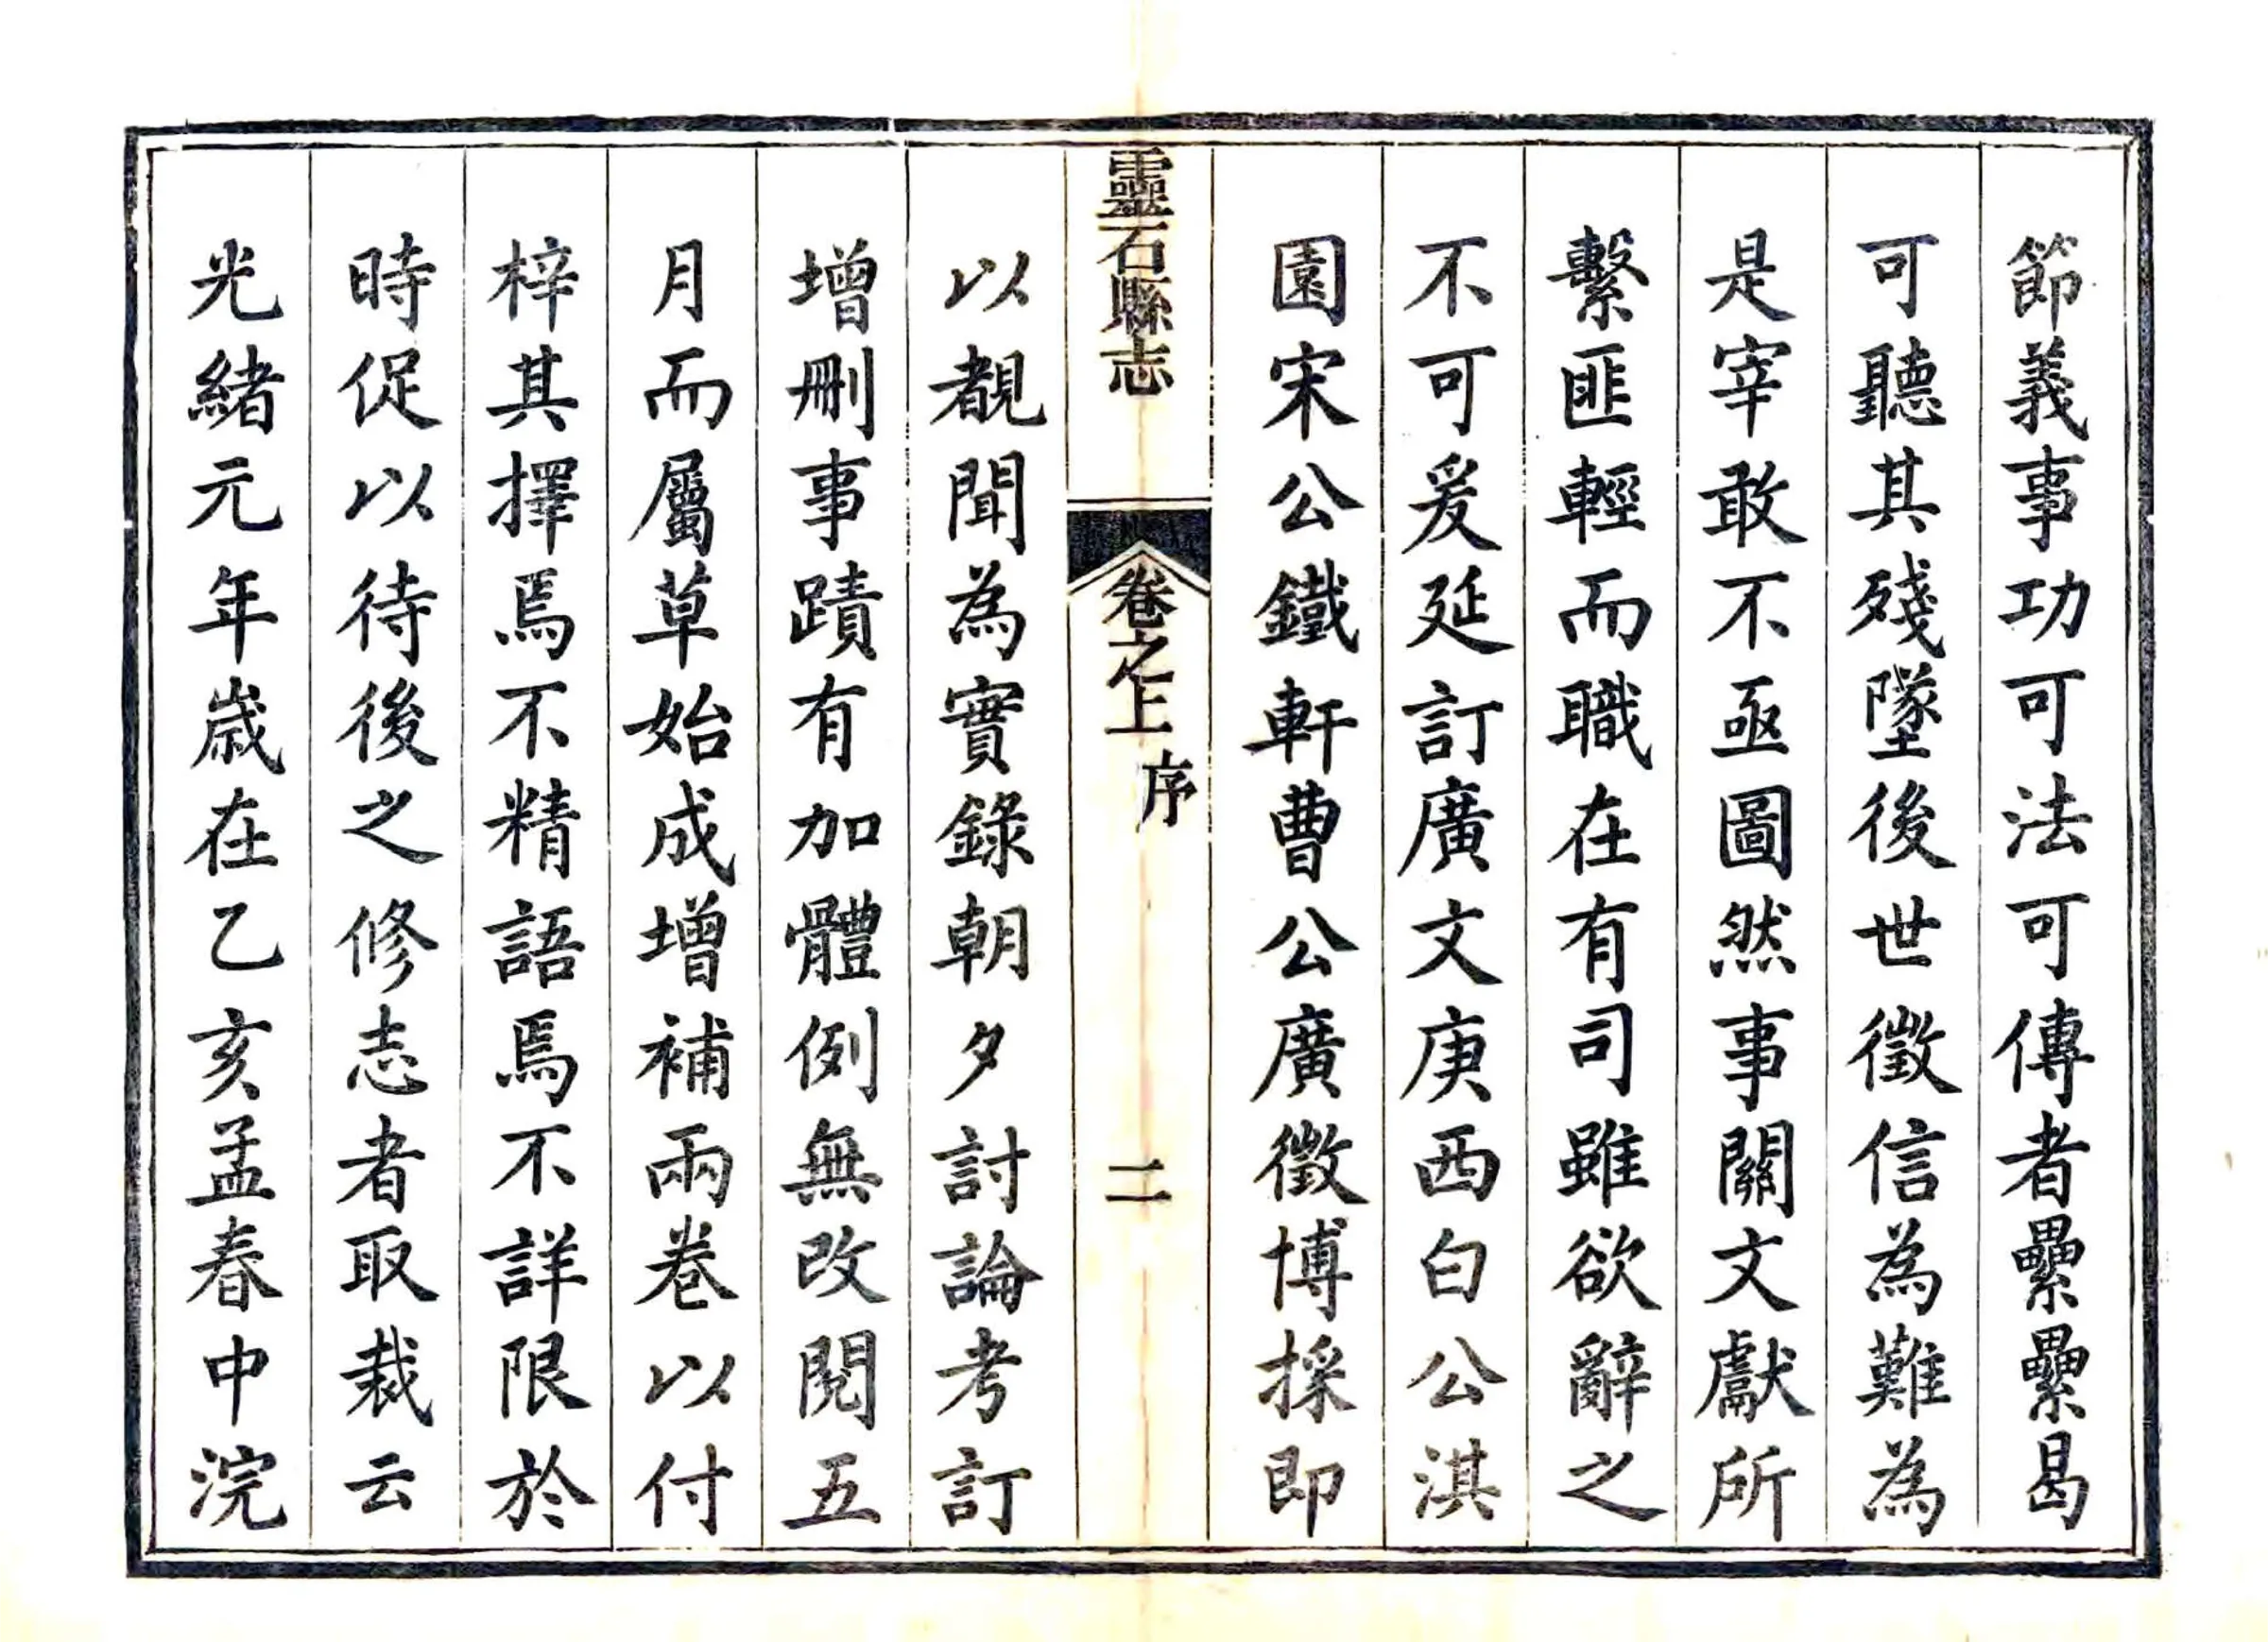 節義事功可法可傳者纍纍曷
可聽其殘墜後世徵信為難為
是宰敢不亟圖然事關文獻所
繫匪輕而職在有司雖欲辭之
不可爰延訂廣文庚西白公淇
園宋公鐵軒曹公廣徵博採即
靈石縣志
卷之上
序
二
以覩聞為實錄朝夕討論考訂
增刪事蹟有加體例無改閱五
月而屬草始成增補兩卷以付
梓其擇焉不精語焉不詳限於
時促以待後之修志者取裁云
光緒元年歲在乙亥孟春中浣